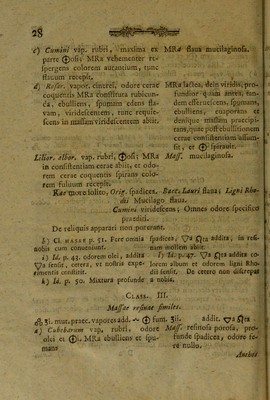 28
c) Cumini vap. rubri, maxima ex
parte osis MRa vehementer re-
spergens colorem autantium, tunc
flavum recepit,
MRa flava mucilaginosa.
d) Rosar. vapor. cinerei, odore cerae
coquentis MRa constituta rubicun-
da, ebulliens, spumam edens fla-
vam, viridescentem, tunc requie-
scens in massam viridescentem abiit.
MRa lactea, dein viridis, pro-
funditur quasi autem, tan-
dem effervescens, spumans,
ebulliens, evaporans et
denique massam praecipi-
tans, quae post ebullitionem
cerae consistentiam assum-
sit, et spiravit.
Lilior. albor. vap. rubri, osi; MRa
in consistentiam cerae abiit, et odo-
rem cerae coquentis spirans colo-
rem fulvum recepit.
Mass. mucilaginosa.
more solito, Orig. spadicea, Bacc. Lauri flava; Ligni Rho-
dii Mucilago flava.
Cumini viridescens; Omnes odore specifico
praediti.
De reliquis apparari non poterunt.
b) Cl. p. 51. Fere omnia
nobis cum conveniunt.
spadicea; addita, in resi-
num mollem abiit.
i) Id. p. 43. odorem olei, addita
sensit, cetera, ut nostris expe-
rimentis constitit.
l) Id. p. 47. addita co-
lorem album et odorem ligni Rho-
dii sensit. De cetero non discrepat
k) Id. p. 50. Mixtura profunde
a nobis.
Class. III.
Massae resinae similes.
3i. mur. praec. vapores add. fum. 3ii. addit.
a) Cubebarum vap. rubri, odore
olei et i. MRa ebulliens et spu-
mans
Mass. resinosa porosa, pro-
funde spadicea, odore fe-
re nullo.
Anethos